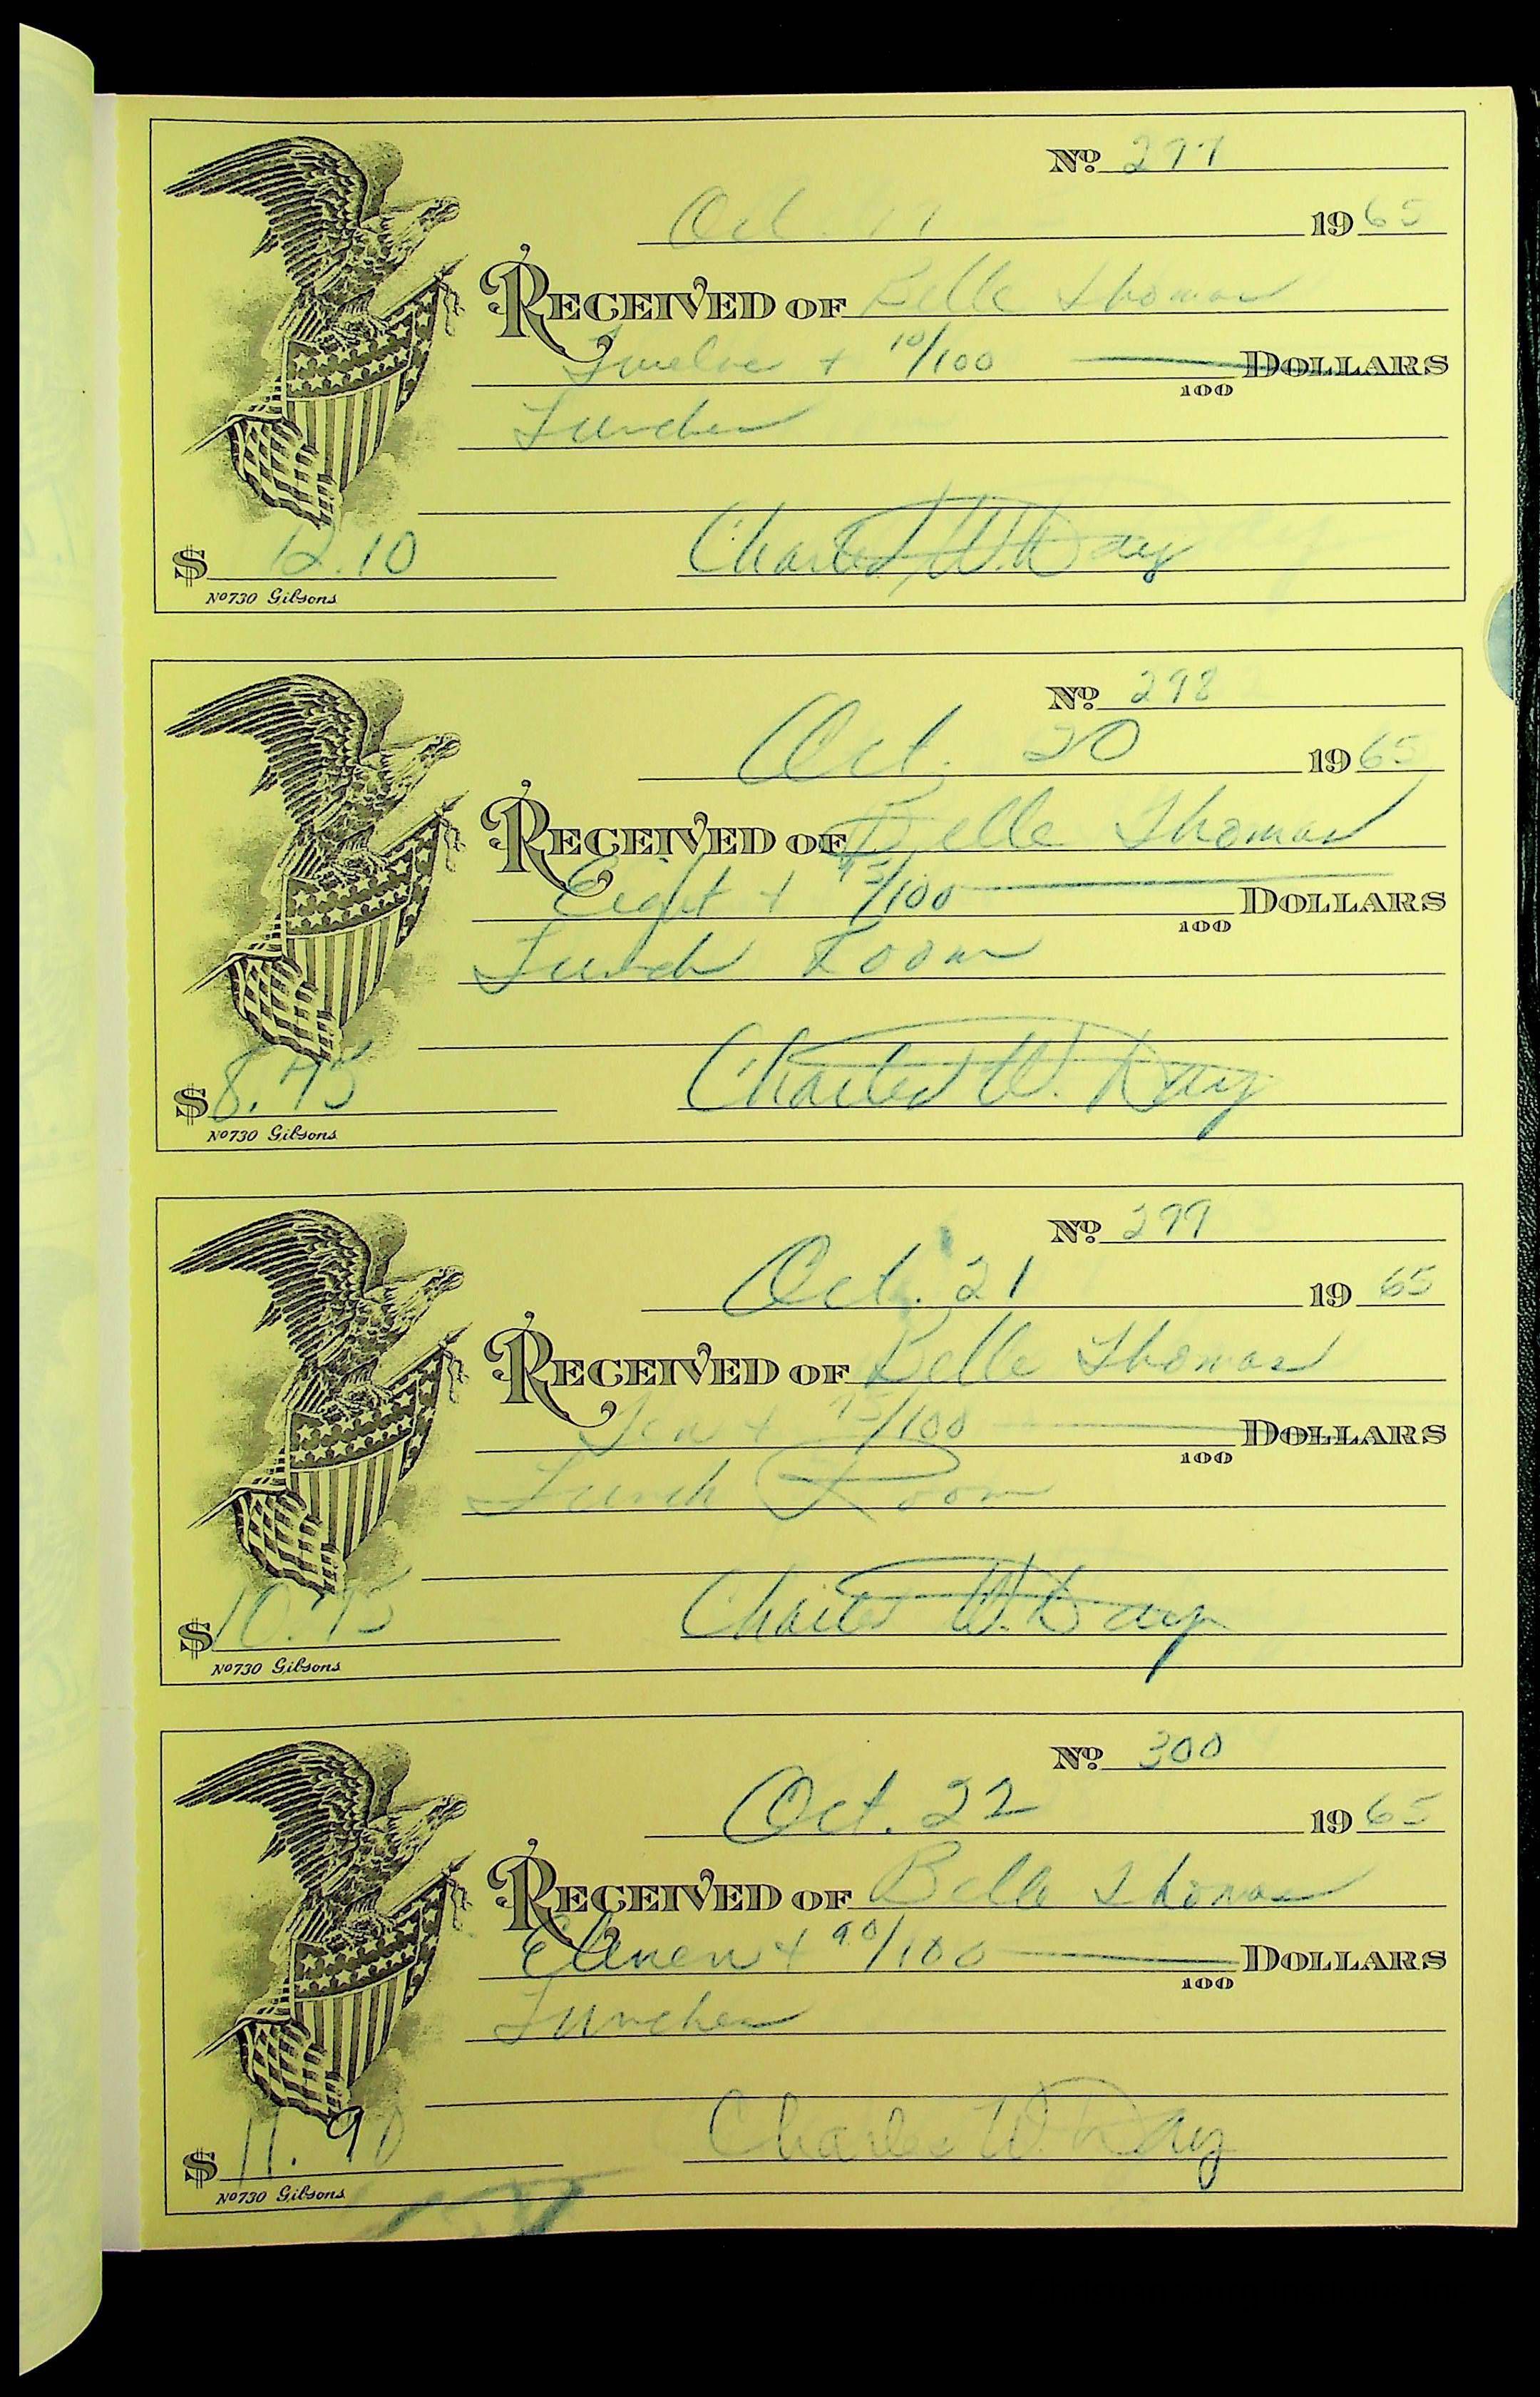 No. 297
Oct. 19 1965
RECEIVED OF Belle Thomas
Twelve + 10/100 DOLLARS
100
Lunches
$ 12.10 Charles W. Day
No 730 Gibsons
No. 298
Oct. 20 1965
RECEIVED OF Belle Thomas
Eight + 75/100 DOLLARS
100
Lunch Room
$ 8.75 Charles W. Day
No 730 Gibsons
No. 299
Oct. 21 1965
RECEIVED OF Belle Thomas
Ten + 75/100 DOLLARS
100
Lunch Room
$ 10.75 Charles W. Day
No 730 Gibsons
No. 300
Oct. 22 1965
RECEIVED OF Belle Thomas
Eleven + 90/100 DOLLARS
100
Lunches
$ 11.90 Charles W. Day
No 730 Gibsons